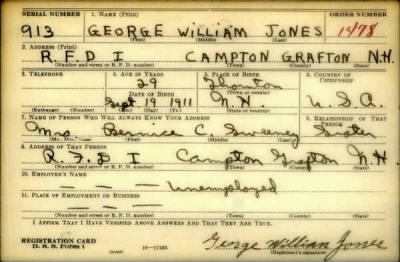 SERIAL NUMBER 1. NAME (Print) ORDER NUMBER
913 GEORGE WILLIAM JONES 1478
(First) (Middle) (Last)
2. ADDRESS (Print)
R.F.D I CAMPTON GRAFTON N.H.
(Number and street or R. F. D. number) (Town) (County) (State)
3. TELEPHONE 4. AGE IN YEARS 5. PLACE OF BIRTH 6. COUNTRY OF CITIZENSHIP
29 Thornton
DATE OF BIRTH (Town or county)
Sept 19 1911 N.H. U.S.A.
(Exchange) (Number) (Mo.) (Day) (Yr.) (State or country)
7. NAME OF PERSON WHO WILL ALWAYS KNOW YOUR ADDRESS 8. RELATIONSHIP OF THAT PERSON
Mrs Bernice C. Sweeney Sister
(Mr., Mrs., Miss) (First) (Middle) (Last)
9. ADDRESS OF THAT PERSON
R.F.D I Campton Grafton N.H
(Number and street or R. F. D. number) (Town) (County) (State)
10. EMPLOYER'S NAME
— — — Unemployed
11. PLACE OF EMPLOYMENT OR BUSINESS
— — —
(Number and street or R. F. D. number) (Town) (County) (State)
I AFFIRM THAT I HAVE VERIFIED ABOVE ANSWERS AND THAT THEY ARE TRUE.
REGISTRATION CARD
D. S. S. Form 1 (over) 16—17105 George William Jones
(Registrant's signature)